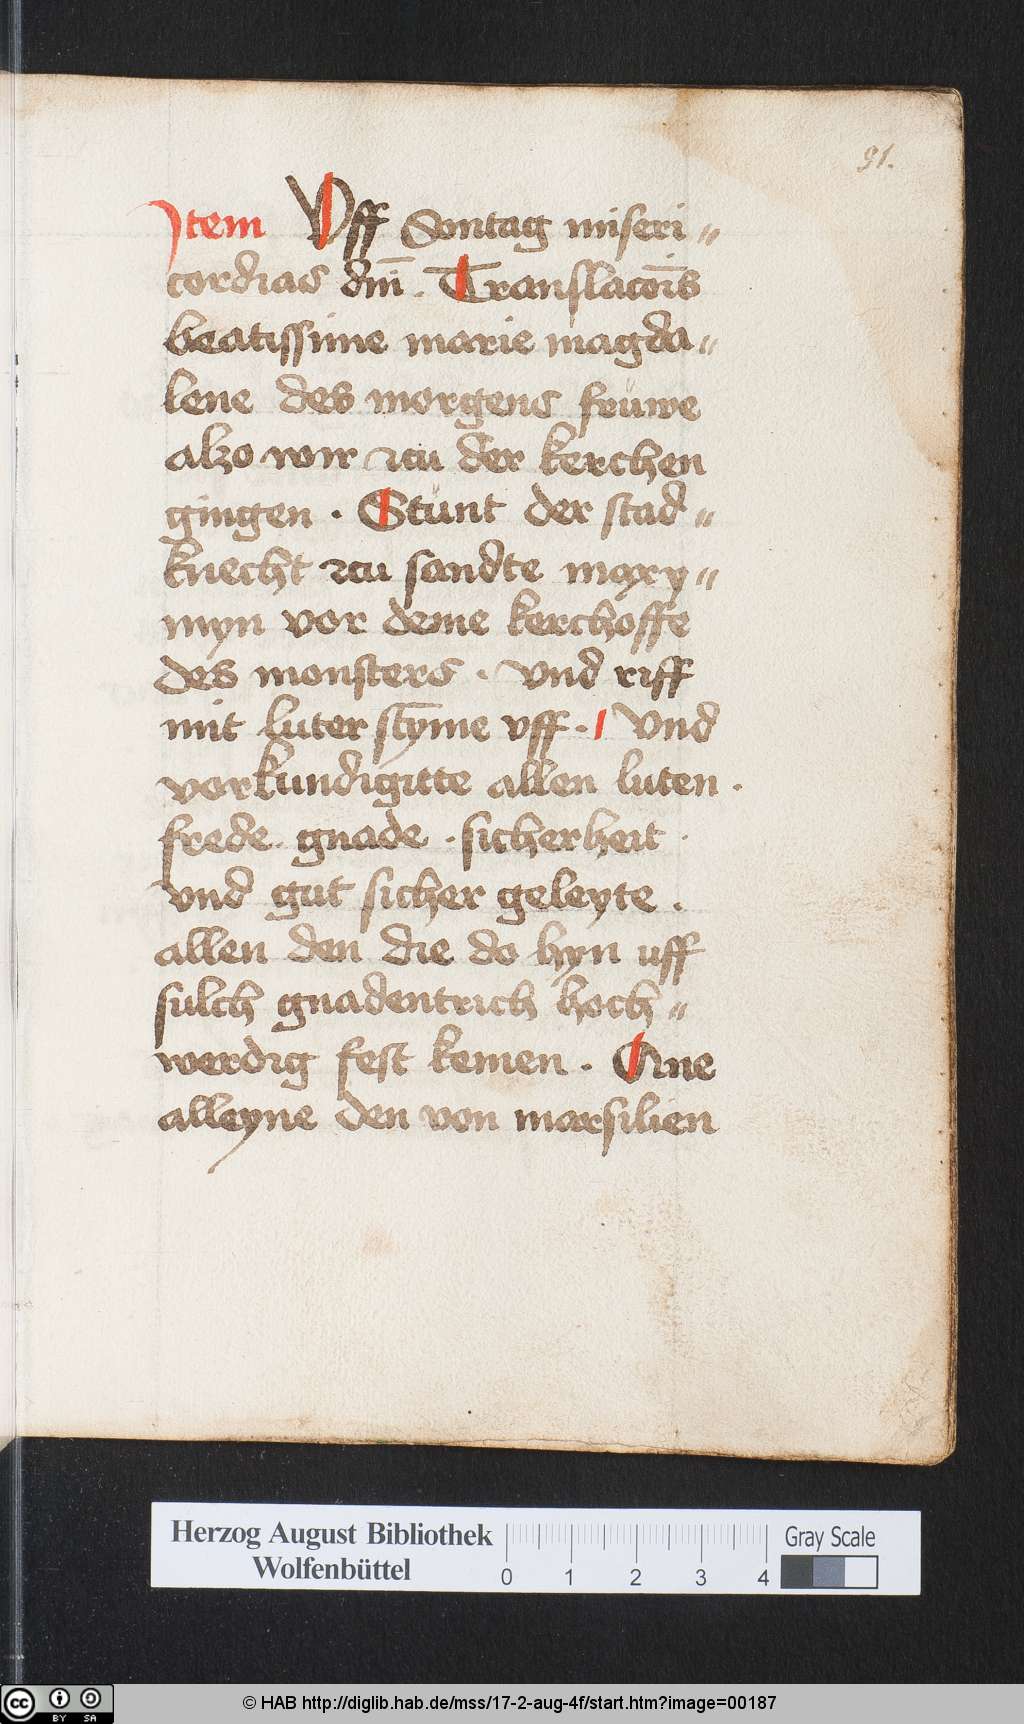 91.
Jtem Vff Sontag miseri„
cordias dm̄. Translacōis
beatissime marie magda„
lene des morgens früwe
alzo wir zcu der kerchen
gingen · Stunt der stad„
knecht zcu sandte maxy„
myn vor deme kerchoffe
des monsters · vnd riff
mit luter stȳme vff · Vnd
vorkundigitte allen luten ·
frede · gnade · sicherheit ·
vnd gut sicher geleyte ·
allen den die do hyn uff
sulch gnadentrich hoch„
werdig fest kemen · Ane
alleyne den von marsilien
Herzog August Bibliothek
Wolfenbüttel
0 1 2 3 4
Gray Scale
cc BY SA
© HAB http://diglib.hab.de/mss/17-2-aug-4f/start.htm?image=00187